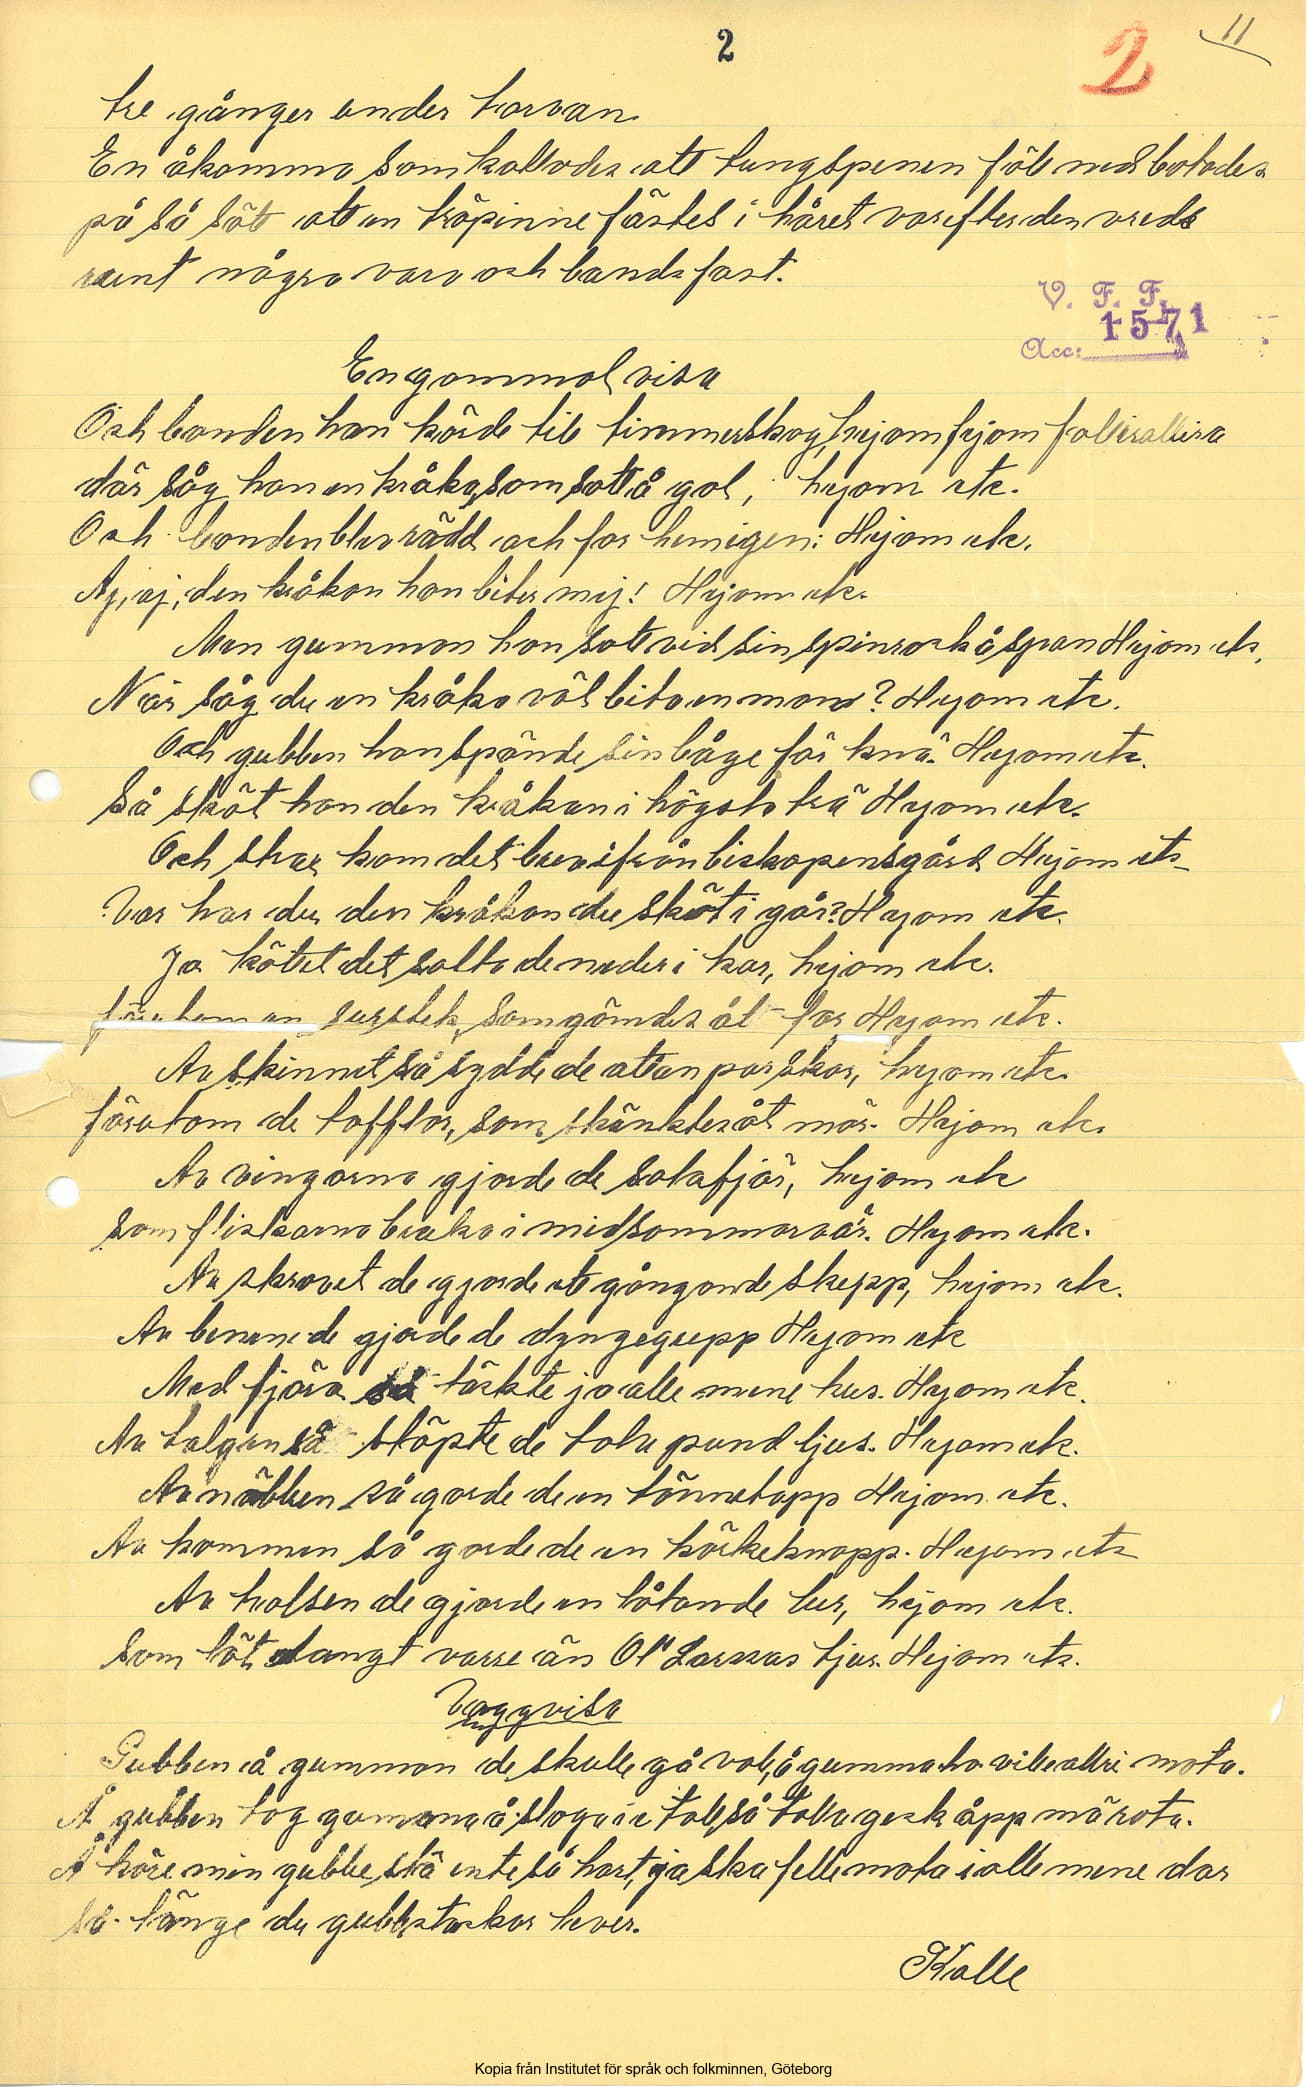 2
2
11
tre gånger under torvan.
En åkomma som kallades att tungspenen föll ned botades
på så sätt att en träpinne fästes i håret varefter den vreds
runt några varv och bands fast.
V. F. F.
1571
Acc:
En gammal visa
Och bonden han körde till timmerskog, hejom fejom falleralleira
där såg han en kråka, som satt å gol, hejom etc.
Och bonden blev rädd och for hem igen: Hejom etc.
Aj, aj, den kråkan hon biter mej! Hejom etc.
Men gumman hon satt vid sin spinrock å span Hejom etc.
När såg du en kråka väl bita en man? Hejom etc.
Och gubben han spände sin båge för knä. Hejom etc.
Så sköt han den kråkan i högsta trä Hejom etc.
Och strax kom det brev ifrån biskopens gård Hejom etc
Var har du den kråkan du sköt i går? Hejom etc.
Ja köttet det salta de neder i kar, hejom etc.
förutom en surstek, som gömdes åt far Hejom etc.
Av skinnet så sydde de attan par skor, hejom etc.
förutom de tofflor, som skänktes åt mor. Hejom etc.
Av vingarna gjorde de sotafjär, hejom etc
som flickorna bruka i midsommarvär. Hejom etc.
Av skrovet de gjorde ett gångande skepp, hejom etc.
Av benene de gjorde de dyngegrepp Hejom etc
Med fjära så täckte ja alle mene hus. Hejom etc.
Av talgen så stöpte de tolv pund ljus. Hejom etc.
Av näbben så gorde de en tönnetapp Hejom etc.
Av kammen så gorde de en körkeknapp. Hejom etc
Av halsen de gjorde en låtande lur, hejom etc.
som lät langt varre än Ol' Larssas tjur. Hejom etc.
Vaggvisa
Gubben å gumman de skulle gå vall, å gumma ho ville alri mota.
Å gubben tog gumma å sloga i e tall, så talla geck åpp mä rota.
Å köre min gubbe, slå ente så hart, ja ska felle mota i alle mene dar
så länge du gubbstackar lever.
Kalle
Kopia från Institutet för språk och folkminnen, Göteborg